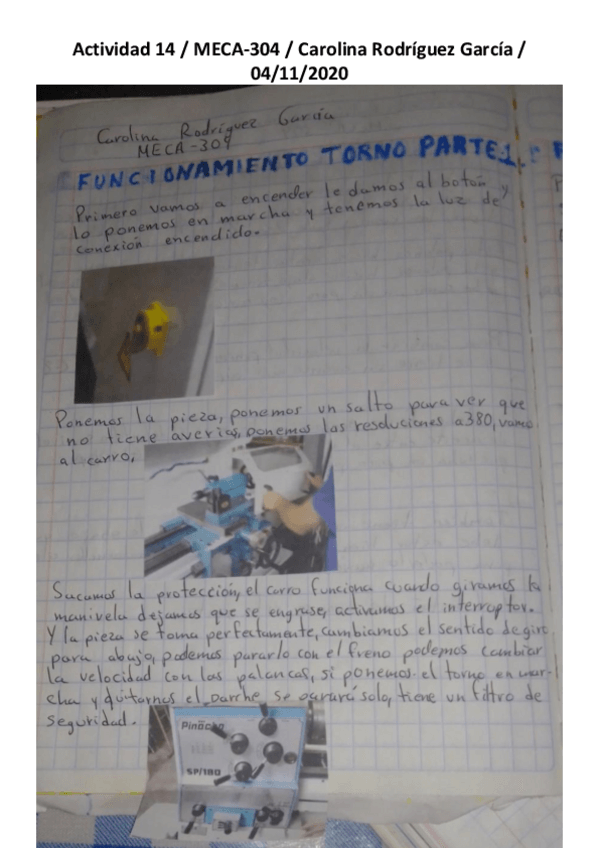 Actividad 14 / MECA-304 / Carolina Rodríguez García /
04/11/2020
Carolina Rodríguez García
MECA-304
FUNCIONAMIENTO TORNO PARTE 1.
Primero vamos a encender le damos al botón y
lo ponemos en marcha y tenemos la luz de
conexión encendido.
Ponemos la pieza, ponemos un salto para ver que
no tiene averias, ponemos las resoluciones a 380, vamos
al carro.
Sacamos la protección, el carro funciona cuando giramos la
manivela dejamos que se engrase, activamos el interruptor.
Y la pieza se toma perfectamente, cambiamos el sentido de giro
para abajo, podemos pararlo con el freno podemos cambiar
la velocidad con las palancas, si ponemos el torno en mar-
cha y quitamos el parche se parará solo, tiene un filtro de
seguridad.
Pinacho
SP/180